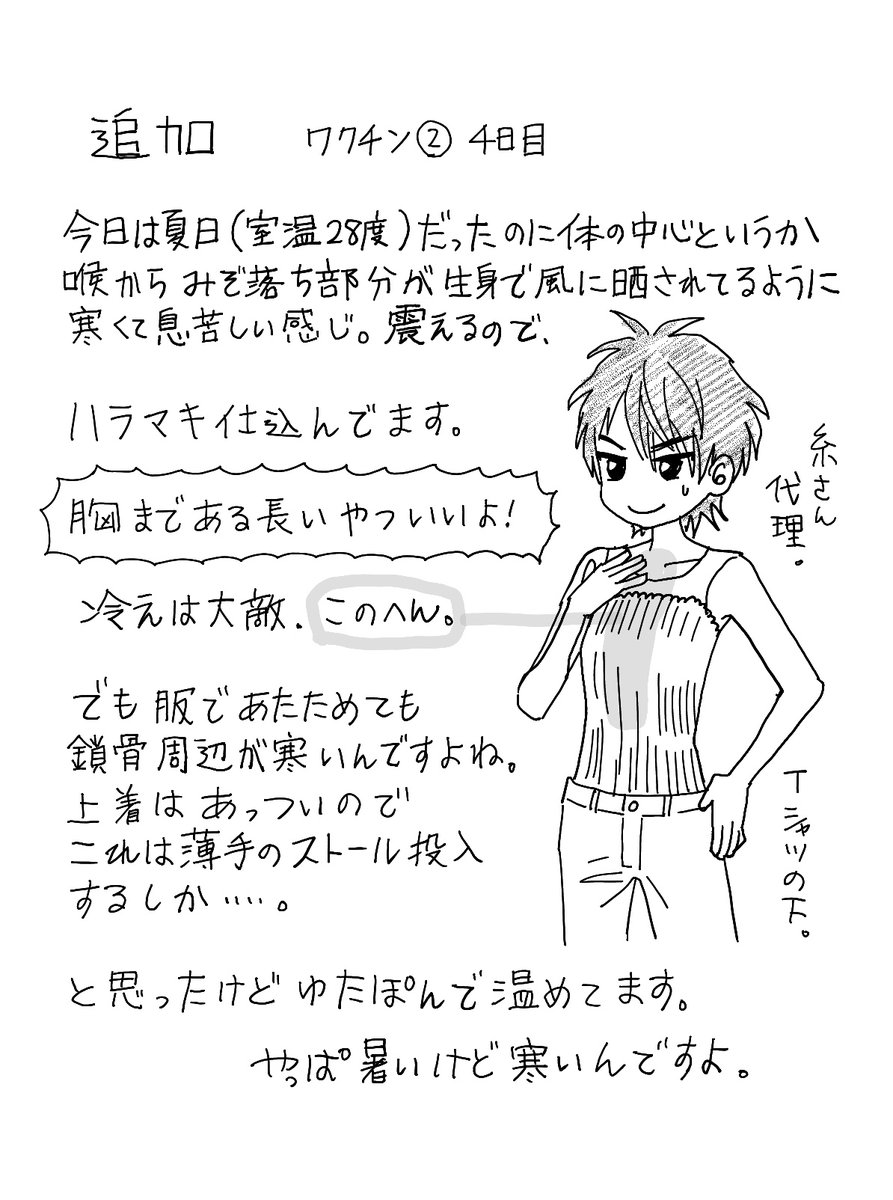 追加 ワクチン② 4日目
今日は夏日(室温28度)だったのに体の中心というか
喉からみぞ落ち部分が生身で風に晒されてるように
寒くて息苦しい感じ。震えるので、
ハラマキ仕込んでます。
胸まである長いやついいよ!
糸さん
代理。
冷えは大敵.このへん。
でも服であたためても
鎖骨周辺が寒いんですよね。
上着はあっついので
これは薄手のストール投入
するしか…‥。
Tシャツの下。
と思ったけどゆたぽんで温めてます。
やっぱ暑いけど寒いんですよ。